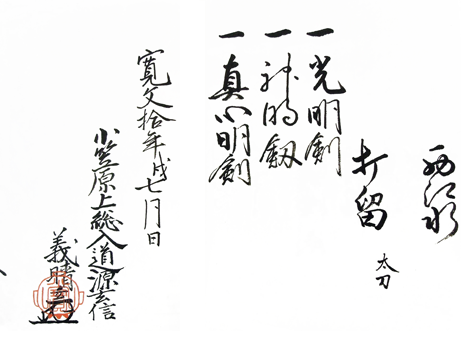 西江水
打留 太刀
一光明剣
一神明剱
一真心明剣
寛文拾年戌七月日
小笠原上総入道源玄信
義晴